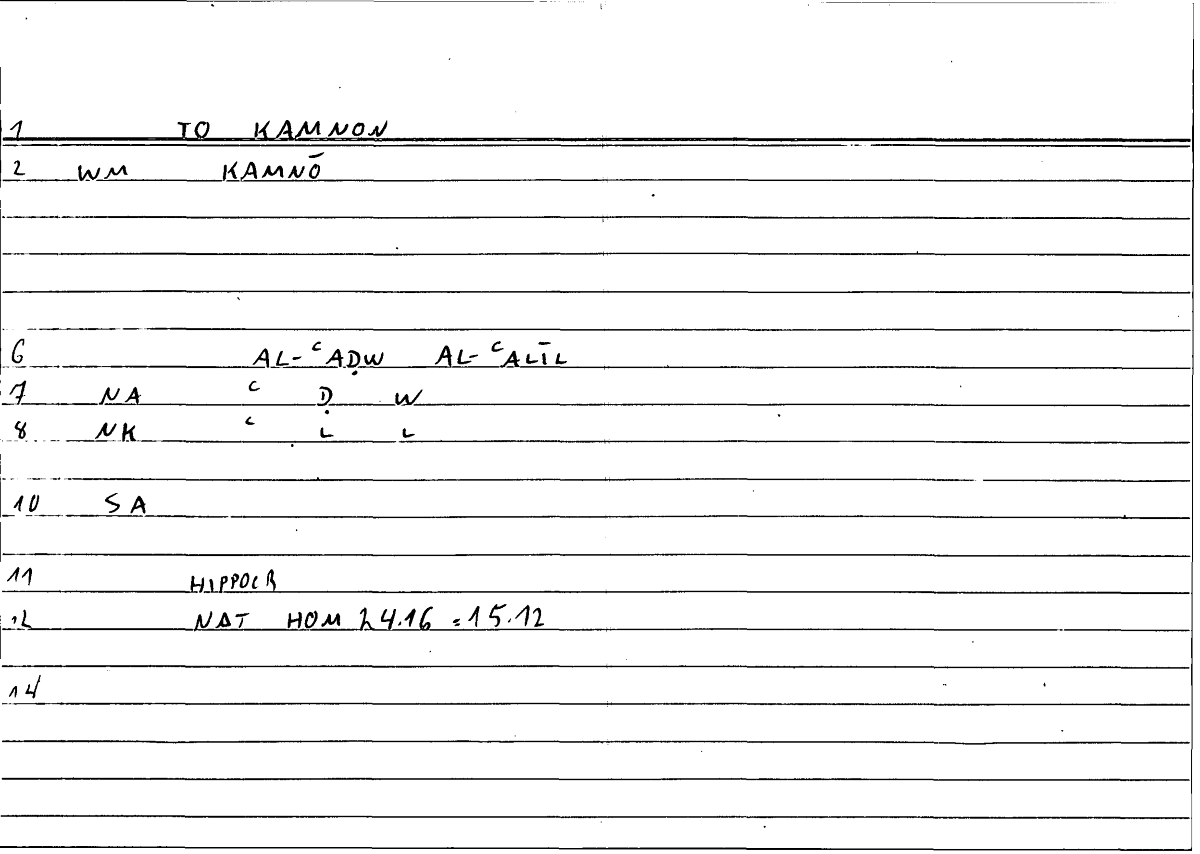 1 TO KAMNON
2 WM KAMNŌ
6 AL-ʿAḌW AL-ʿALĪL
7 NA ʿ Ḍ W
8 NK ʿ L L
10 SA
11 HIPPOCR
12 NAT HOM 24.16 = 15.12
14